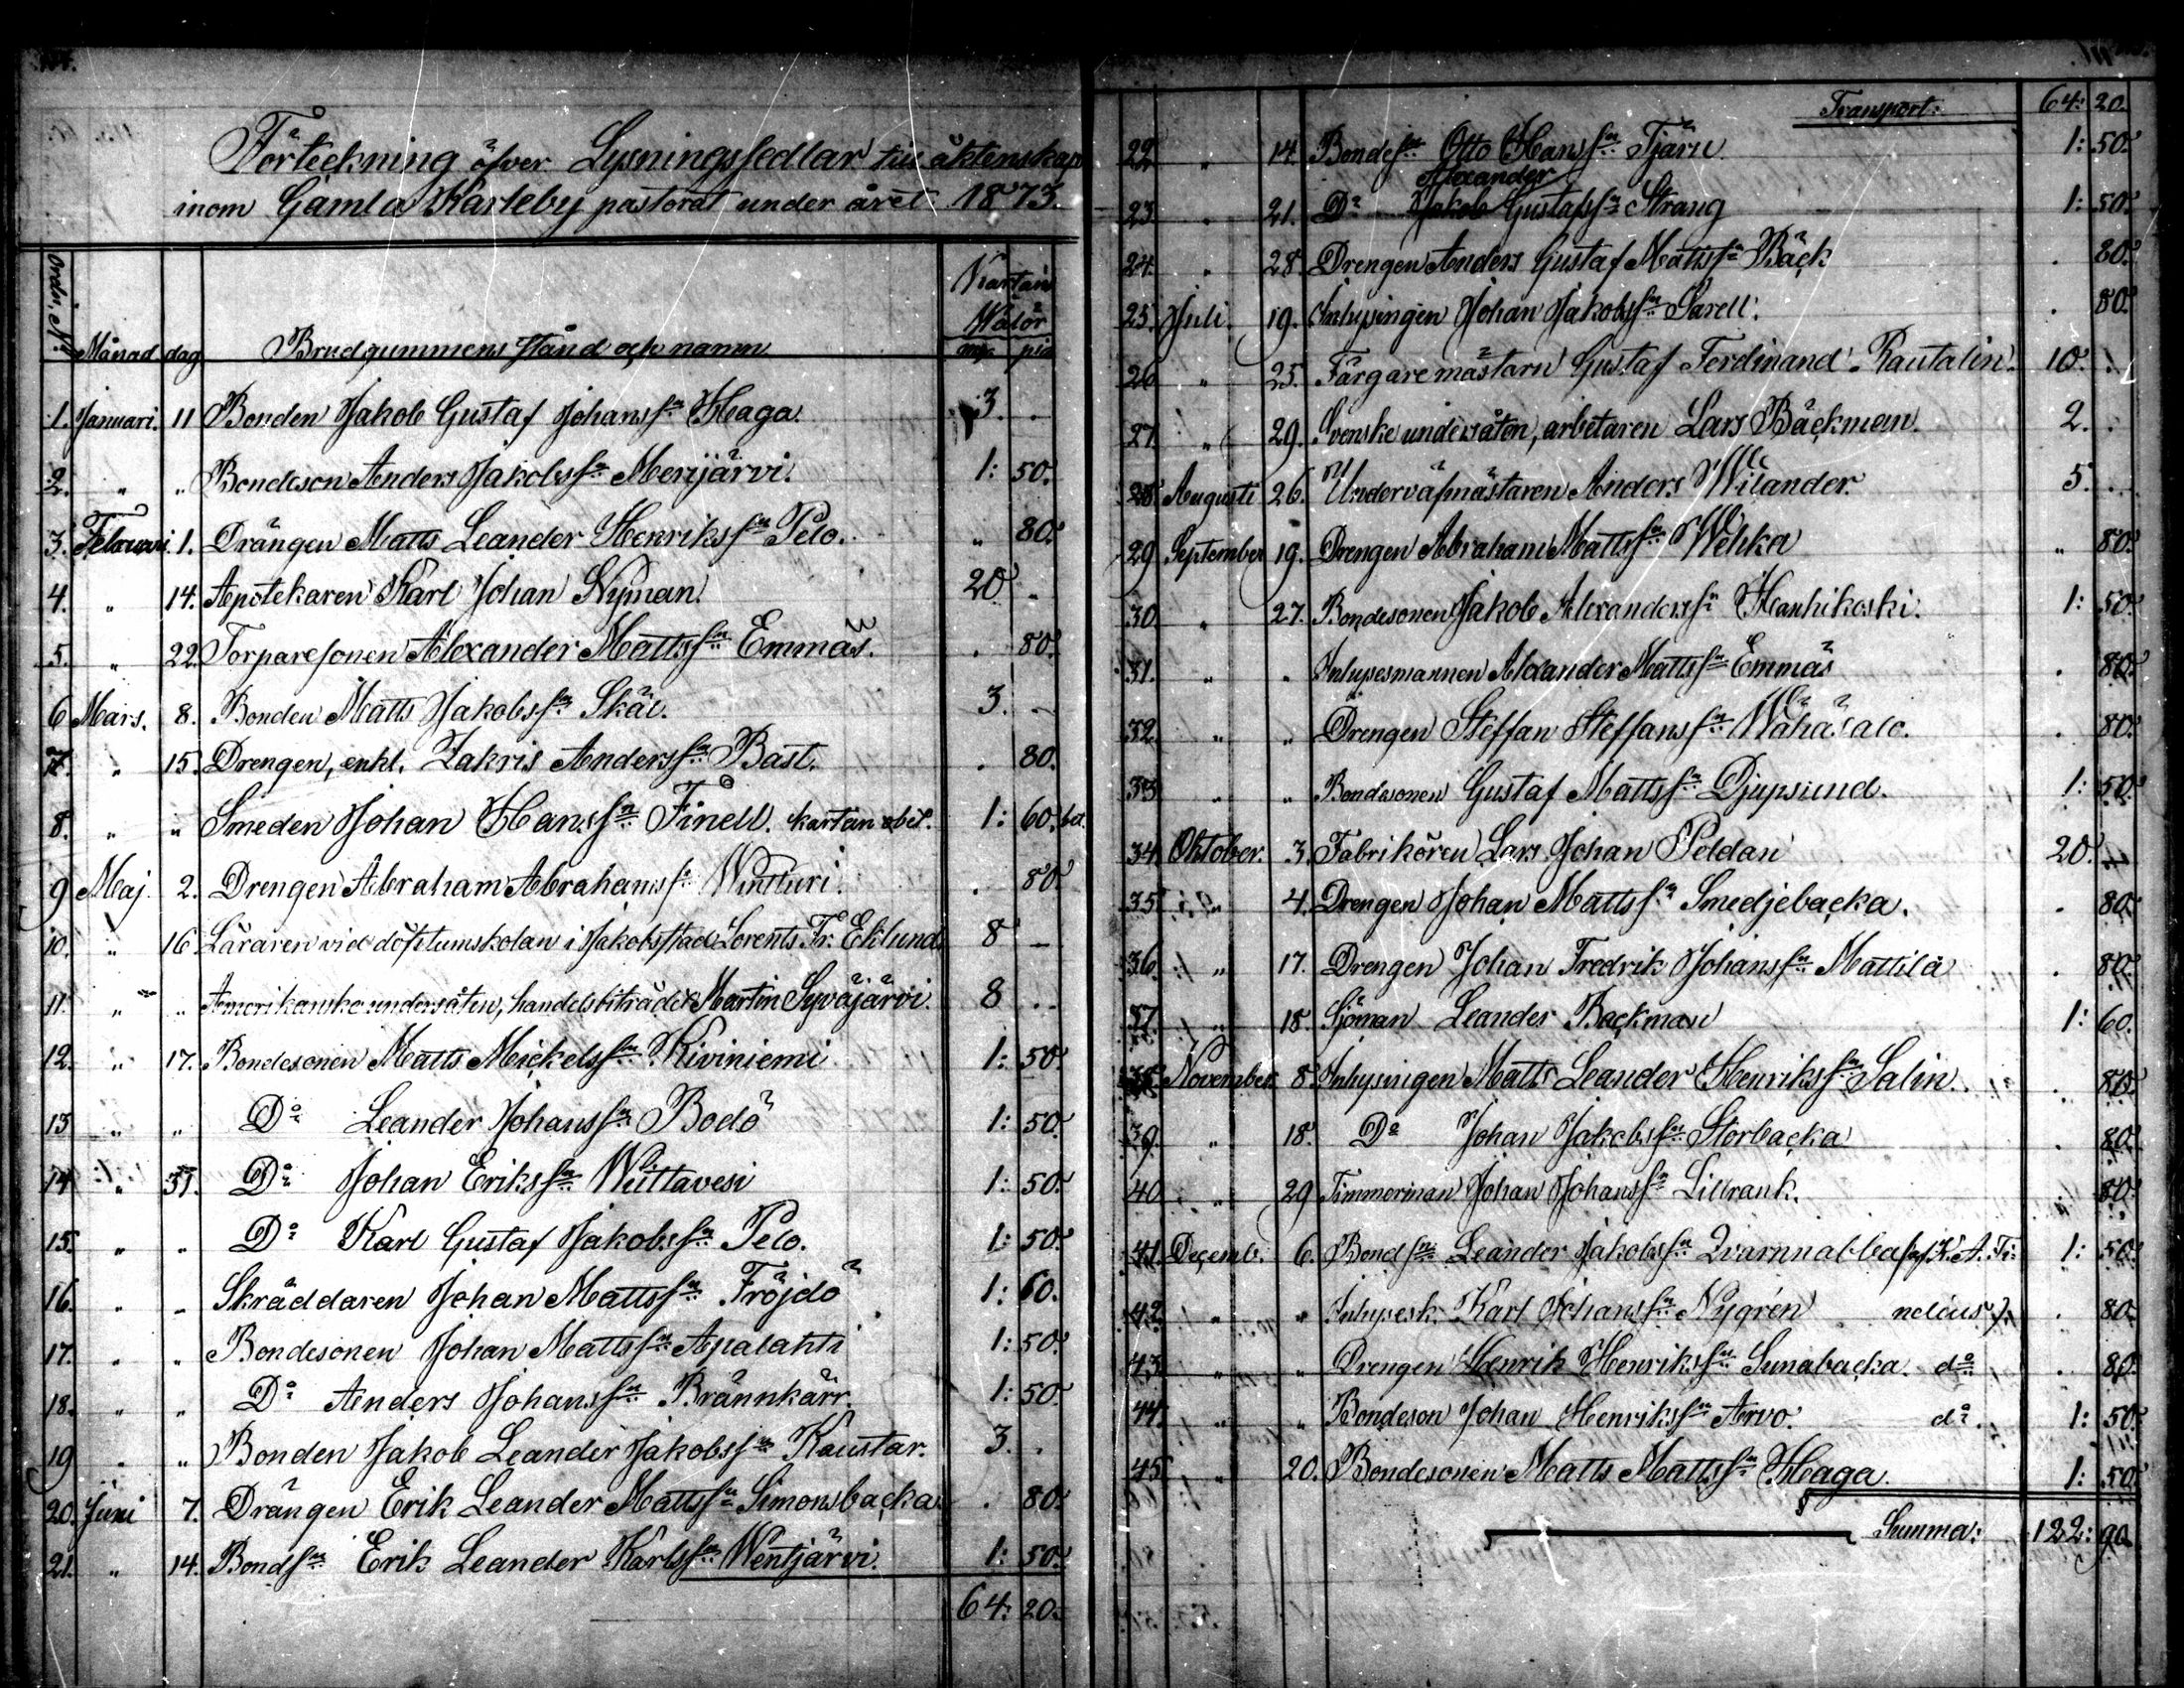 Förteckning öfver Lysningssedlar till äktenskap
inom Gamla Karleby pastorat under året 1873.
Ordn. No Månad dag Brudgummens stånd och namn Kartan Walör m/k pi
1. Januari. 11 Bonden Jakob Gustaf Johanssn Haga. 3. -
2. " " Bondeson Anders Jakobssn Merijärvi. 1: 50.
3. Februari. 1. Drängen Matts Leander Henrikssn Pelo. " 80.
4. " 14. Apotekaren Karl Johan Nyman. 20 -
5. " 22. Torparesonen Alexander Mattssn Emmäs. . 80.
6 Mars. 8. Bonden Matts Jakobssn Skär. 3. -
7. " 15. Drengen, enkl. Zakris Anderssn Bast. . 80.
8. " " Smeden Johan Hanssn Finell. kartan obet. 1: 60. bet.
9 Maj. 2. Drengen Abraham Abrahamss. Wintturi. . 80.
10. " 16. Läraren vid döfstumskolan i Jakobstad Lorents Fr. Eklund 8 -
11. " " Amerikanska undersåten, handelsbiträdet Martin Syväjärvi. 8 ..
12. " 17. Bondesonen Matts Mickelssn Kiviniemi 1: 50.
13 " " Do Leander Johanssn Bodö 1: 50.
14 " 31. Do Johan Erikssn Wiittavesi 1: 50.
15. " " Do Karl Gustaf Jakobssn Pelo. 1: 50.
16. " " Skräddaren Johan Mattssn Fröjdö 1: 60.
17. " " Bondesonen Johan Mattssn Apalahti 1: 50.
18. " " Do Anders Johanssn Brännkärr. 1: 50.
19 " " Bonden Jakob Leander Jakobssn Kaustar. 3. .
20. Juni 7. Drängen Erik Leander Mattssn Simonsbacka. . 80.
21. " 14. Bondsn Erik Leander Karlssn Wentjärvi. 1: 50.
64: 20.
Transport: 64: 20.
22 " 14. Bondesn Otto Hanssn Tjäru. 1: 50.
Alexander
23 " 21. Do Jakob Gustafssn Strang 1: 50.
24. " 28. Drengen Anders Gustaf Mattssn Bäck . 80.
25. Juli. 19. Inhysingen Johan Jakobssn Sarell. . 80.
26 " 25. Färgaremästarn Gustaf Ferdinand Rautalin. 10. .
27. " 29. Svenske undersåten, arbetaren Lars Bäckman. 2. .
28. Augusti 26. Underväfmästaren Anders Wilander. 5. ..
29 September 19. Drengen Abraham Mattssn Wehka " 80.
30. " 27. Bondesonen Jakob Alexanderssn Hanhikoski. 1: 50.
31. " " Inhysesmannen Alexander Mattssn Emmäs . 80.
32. " " Drengen Steffan Steffanssn Wähäsalo. . 80.
33 " " Bondesonen Gustaf Mattssn Djupsund. 1: 50.
34. Oktober. 3. Fabrikören Lars Johan Peldan 20. -
35. " 4. Drengen Johan Mattssn Smedjebacka. . 80.
36. " 17. Drengen Johan Fredrik Johanssn Mattila . 80.
37. " 18 Sjöman Leander Backman 1: 60.
38. November 8. Inhysingen Matts Leander Henrikssn Salin. . 80.
39. " 18. Do Johan Jakobssn Storbacka . 80.
40. " 29 Timmerman Johan Johanssn Lillrank. . 80.
41. Decemb. 6. Bondsn Leander Jakobssn Qvarnnabba (af K. A. Fi- 1: 50.
42 " " Inhysesk. Karl Johanssn Nygrén nelius). . 80.
43 " " Drengen Henrik Henrikssn Sunabacka. do . 80.
44. " " Bondeson Johan Henrikssn Arvo. do. 1: 50.
45 " 20. Bondesonen Matts Mattssn Haga. 1: 50.
Summa: 122: 90.